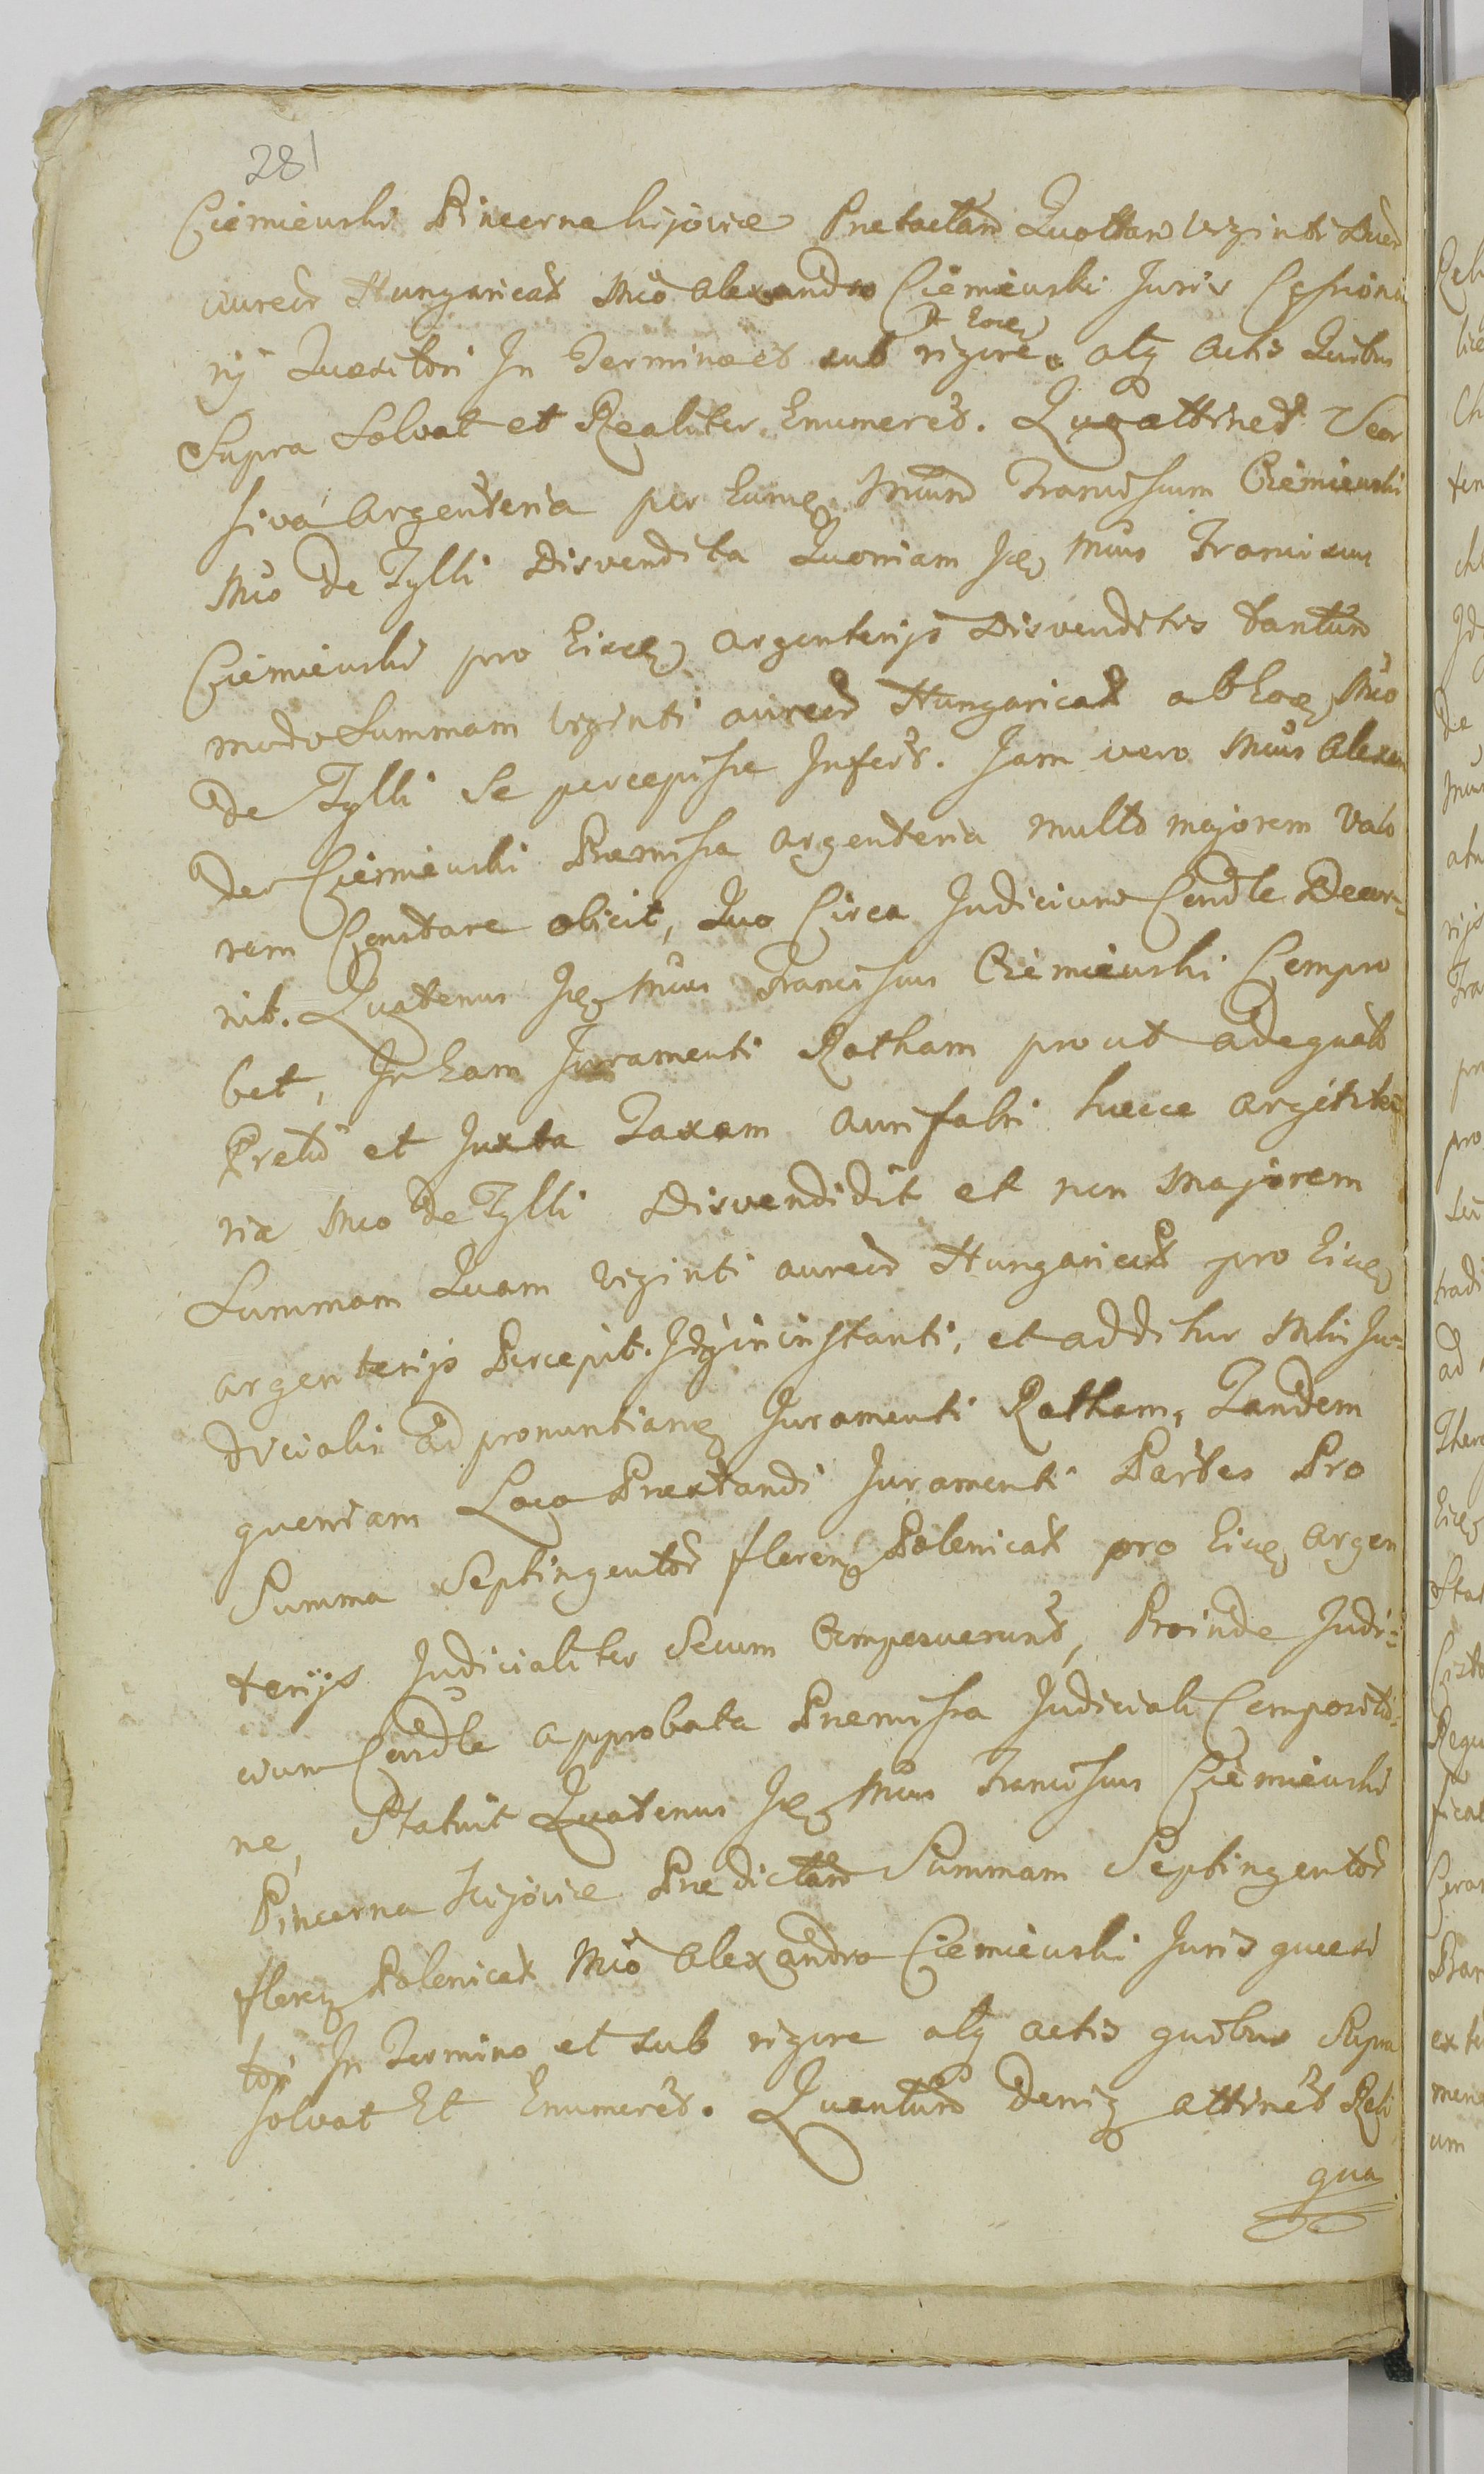 281
Ciemieński Pincerna Kijoviæ Prætactam Quottam Viginti Duor
aureor Hungaricał Mco Alexandro Ciemieński Juris Cessiona
rij Quæsitori In Termino et sub rigore atq actis Quibus
et Eoq
Supra Solvat et Realiter Enumeret. Qug attinet
siva Argenteria per Eumq Mcum Franciscum Ciemieński
Mco de Tylli Disvendita Quoniam Jdq Mcus Franciscus
Ciemieński pro Eisq Argenterijs Disvenditis tantum
modo Summam Viginti aureor Hungaricał ab Eoq Mco
de Tylli Se percepisse Infert. Jam vero Mcus Alexan
der Ciemieński Præmissa Argenteria multo majorem Valo
rem Constare obicit, Quo Circa Judicium Condle Decer=
nit. Quatenus Jdq Mcus Franciscus Ciemieński Compro
bet, In Eam Juramenti Rotham prout adæquato
Pretio et Juxta Taxam aurifabri hæcce Argente
ria Mco de Tylli Disvendidit et non Majorem
Summam Quam Viginti aureor Hungaricał pro Eisq
Argenterijs Percepit. Idq in instanti, et additur Mlri Ju=
diciali ad pronuntianq Juramenti Rotham, Tandem
quoniam Loco Præstandi Juramenti Partes Pro
Summa Septingentor floren Polonicał pro Eisq Argen
terijs Judicialiter Secum Composuerunt, Proinde Judi=
cium Condle approbata Præmissa Judiciali Compositio=
ne, Statuit Quatenus Jdq Mcus Franciscus Ciemieński
Pincerna Kijoviæ Prædictam Summam Septingentor
floren Polonicał Mco Alexandro Ciemieński Juris quæsi
tori In Termino et sub rigore atq actis quibus Supra
solvat Et Enumeret. Quantum Deniq attinet Reli
qua